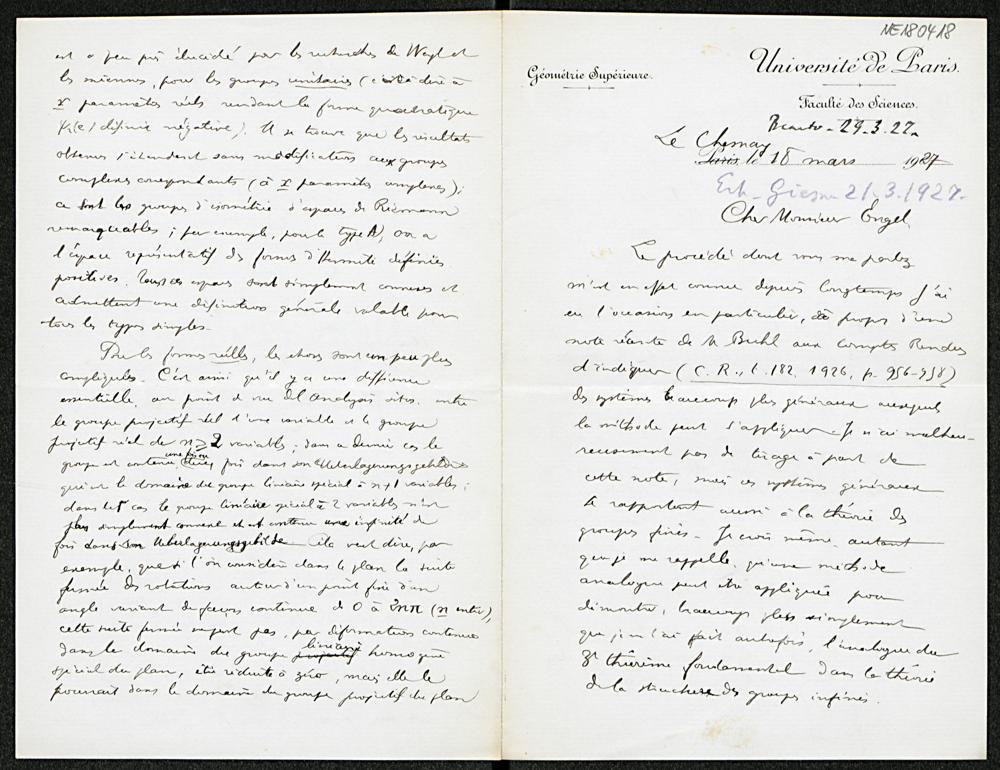 NE180418
Université de Paris.
Géométrie Supérieure.
Faculté des Sciences.
29.3.27.
Le Chesnay
Paris, le 18 mars 1927
21.3.1927.
Cher Monsieur Engel,
Le procédé dont vous me parlez
m'est en effet connu depuis longtemps J'ai
eu l'occasion en particulier, à propos d'une
note récente de M. Buhl aux Comptes Rendus
d'indiquer (C. R., t. 182, 1926, p. 956-958)
des systèmes beaucoup plus généraux auxquels
la méthode peut s'appliquer. Je n'ai malheu-
reusement pas de tirage à part de
cette note, mais ces systèmes généraux
se rapportent aussi à la théorie des
groupes finis. Je crois même, autant
que je me rappelle, qu'une méthode
analogue peut être appliquée pour
démontrer, beaucoup plus simplement
que je ne l'ai fait autrefois, l'analogue du
3e théorème fondamental dans la théorie
de la structure des groupes infinis.
est à peu près élucidé par les recherches de Weyl et
les miennes, pour les groupes unitaires (c'est à dire à
r paramètres réels rendant la forme quadratique
(e) définie négative). Il se trouve que les résultats
obtenus s'étendent sans modification aux groupes
complexes correspondants (à r paramètres complexes);
ce sont les groupes d'isométrie d'espaces de Riemann
remarquables; par exemple, pour le type A, on a
l'espace représentatif des formes d'Hermite définies
positives. Tous ces espaces sont simplement connexes et
admettent une définition générale valable pour
tous les types simples.
Pour les formes réelles, les choses sont un peu plus
compliquées. C'est ainsi qu'il y a une différence
essentielle, au point de vue de l'Analysis situs, entre
le groupe projectif réel d'une variable et le groupe
projectif réel de n ≥ 2 variables; dans ce dernier cas le
groupe est contenu une fois ou deux fois dans son Ueberlagerungsgebilde
qui est le domaine du groupe linéaire spécial à n+1 variables;
dans le 1er cas le groupe linéaire spécial à 2 variables n'est
plus simplement connexe et est contenu une infinité de
fois dans son Ueberlagerungsgebilde. Cela veut dire, par
exemple, que si l'on considère dans le plan la suite
fermée des rotations autour d'un point fixe d'un
angle variant de façon continue de 0 à 2nπ (n entier),
cette suite fermée ne peut pas, par déformation continue
dans le domaine du groupe linéaire homogène
spécial du plan, être réduite à zéro, mais elle le
pourrait dans le domaine du groupe projectif du plan